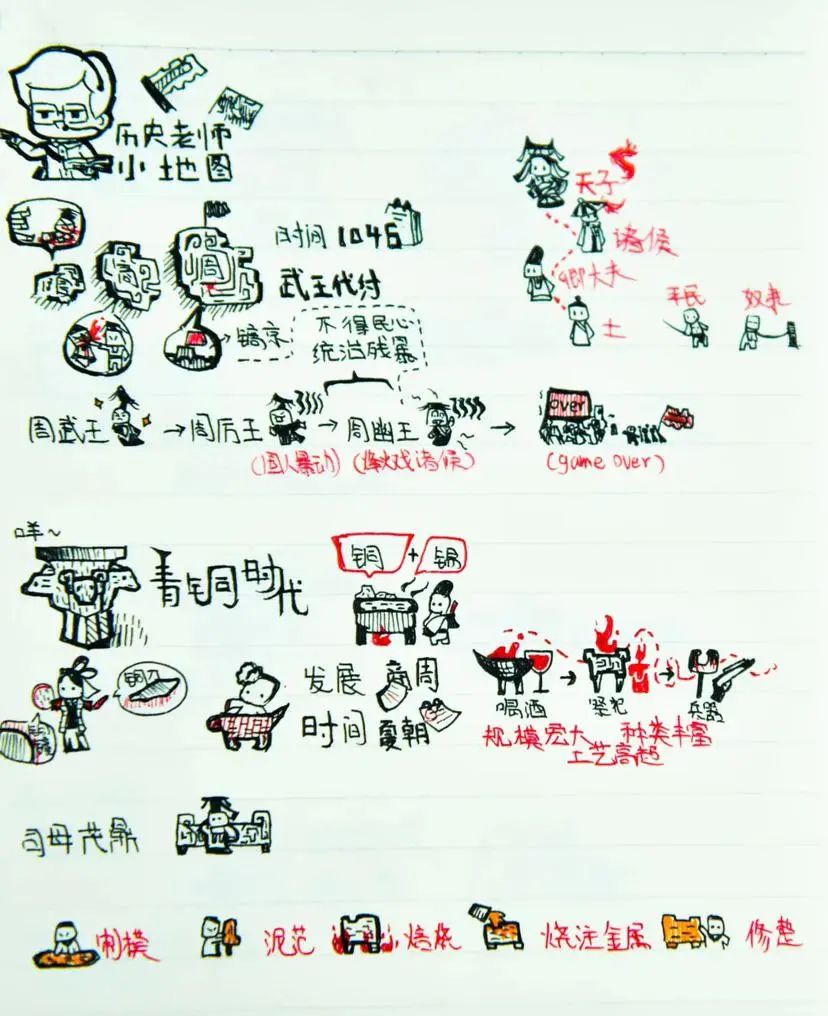 历史老师
小地图
天子
诸侯
卿大夫
士
平民
奴隶
时间 1046
武王伐纣
商
商
周
镐京
不得民心
统治残暴
周武王 → 周厉王 → 周幽王 → over
(国人暴动) (烽火戏诸侯) (game over)
咩~
青铜时代
铜 + 锡
铜刀
发展 商周
时间 夏朝
喝酒 → 祭祀 → 兵器
规模宏大 种类丰富
工艺高超
司母戊鼎
制模 泥范 焙烧 烧注金属 修整